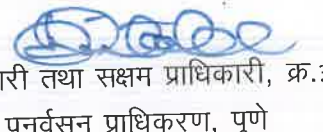 ारी तथा सक्षम प्राधिकारी, क्र.
पुनर्वसन प्राधिकरण, पुणे